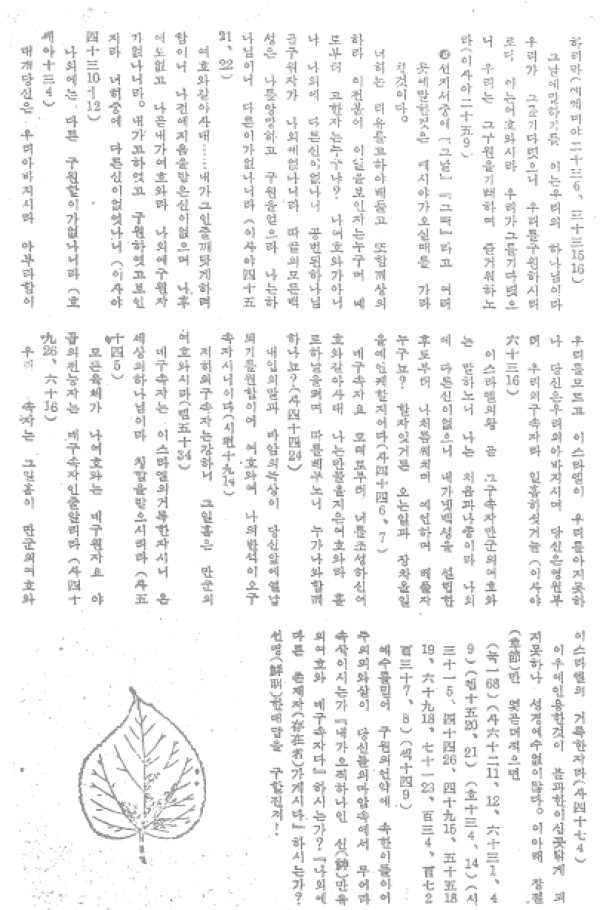 하리라(예레미야二十三6、三十三15 16)
그날에말하기를 이는우리의 하나님이라
우리가 그를기다렷으니 우리를구원하시리
로다 이는여호와시라 우리가그를기다렷으
니 우리는 그구원을기뻐하며 즐거워하노
라(이사야 二十五9)
선지서중에『그날』『그때』라고 여러
곳에말한것은 메시야가오실때를 가라
친것이다。
너희는 리유를고하야베풀고 또함께상의
하라 이전붙어 이일을보인자는누구며 예
로부터 고한자는누구냐? 나여호와가아니
냐 나외에 다른신이없나니 공번된하나님
곧구원자가 나외에없나니라 따끝의모든백
성은 나를앙망하고 구원을얻으라 나는하
나님이니 다른이가없나니라(이사야四十五
21、22)
여호와갈아사대……내가그인줄깨닷게하며
함이니 나전에지음을받은신이없으며 나후
에도없고 나곧내가여호와라 나외에구원자
가없나니라。내가고하엿고 구원하엿고보인
지라 너희중에 다른신이없엇나니(이사야
四十三10-12)
나외에는 다른 구원할이가없나니라(호
세아十三4)
대개당신은 우리아바지시라 아부라함이
우리를모르고 이스라엘이 우리를아지못하
나 당신은우리의아바지시며 당신은영원부
터 우리의구속자라 일홈하섯거늘(이사야
六十三16)
이스라엘의왕 곧 그구속자만군의여호와
는 말하노니 나는 처음과나종이라 나외
에 다른신이없으니 내가넷백성을 설립한
후로부터 나처름웨치며 예언하며 베플자
누구뇨? 할자잇거든 오는일과 장차올일
을예언케할지어다(사四十四6、7)
네구속자요 모태로부터 너를조성하신여
호와갈아사대 나는만물을지은여호와라 홀
로하날을펴며 따를베푸노니 누가나와함께
하나뇨?(사四十四24)
내입의말과 마암의묵상이 당신앞에열납
되기를원함이여 여호와여 나의반석이오구
속자시니이다(시편十九14)
저희의구속자는강하니 그일홈은 만군의
여호와시라(렘五十34)
네구속자는 이스라엘의거룩한자시니 온
세상의하나님이라 칭함을받으시리라(사五
十四5)
모든육체가 나여호와는 네구원자요 야
곱의전능자는 네구속자인줄알리라(사四十
九26、六十16)
우리 속자는 그일홈이 만군의여호와
이스라엘의 거룩한자라(사四十七4)
이우에인용한것이 불과한이십곳밖게 되
지못하나 성경에수없이많다。이아래 장절
(章節)만 몇곧더적으면
(눅一68)(사六十二11、12、六十三1、4
9)(렘十五20、21)(호十三4、14)(시
三十一5、四十四26、四十九15、五十五18
19、六十九18、七十一23、百三4、百七2
百三十7、8)(섹十四9)
예수를믿어 구원의언약에 속한이들아어
주의피와살이 당신들의마암속에서 무어라
속삭이시는가『내가오직하나인 신(神)만육
의여호와 네구속자다』하시는가?『나외에
다른 존재자(存在者)가게시다』하시는가?
선명(鮮明)한대답을 구할진저!